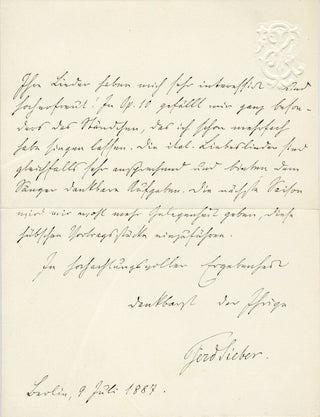 Ihre Lieder haben mich sehr interessirt und
hocherfreut! In Op. 10 gefällt mir ganz beson-
ders das Ständchen, das ich schon mehrfach
habe singen lassen. Die ital. Liebeslieder sind
gleichfalls sehr ansprechend und bieten dem
Sänger dankbare Aufgaben. Die nächste Saison
wird mir wohl mehr Gelegenheit geben, diese
hübschen Vortragsstücke einzuführen.
In hochachtungsvoller Ergebenheit
dankbarst der Ihrige
Ferd Sieber.
Berlin, 9 Juli 1887.